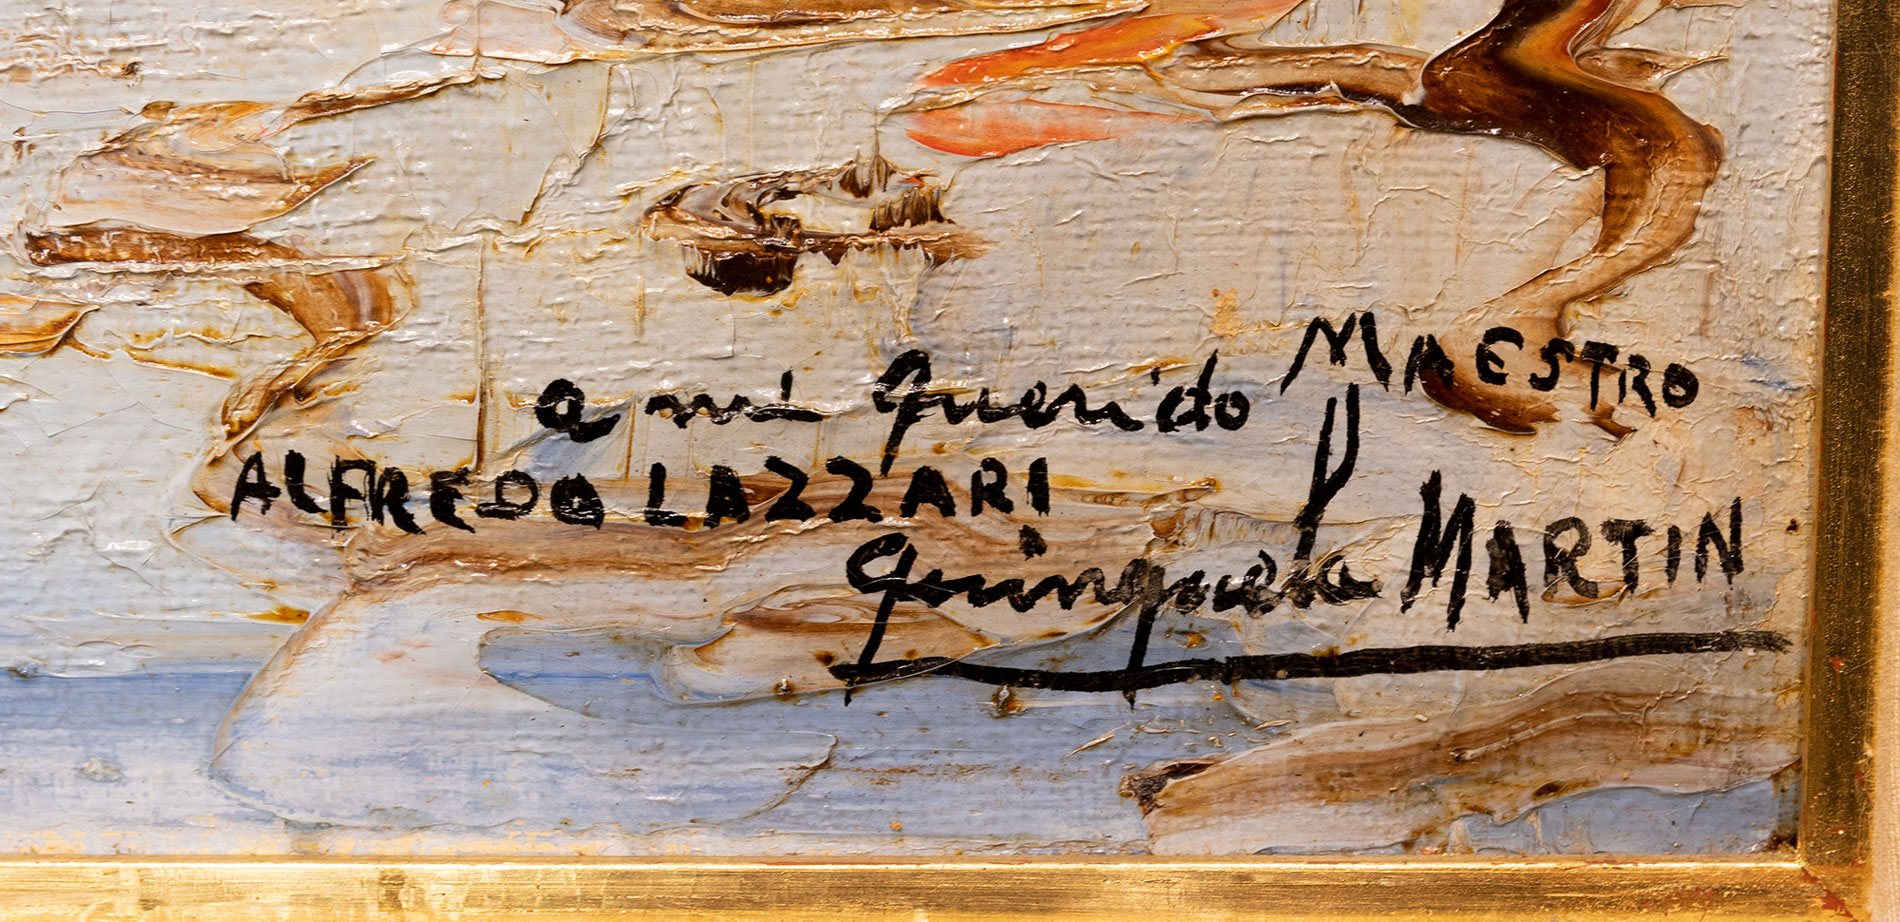 a mi querido MAESTRO
ALFREDO LAZZARI
quinquela MARTIN